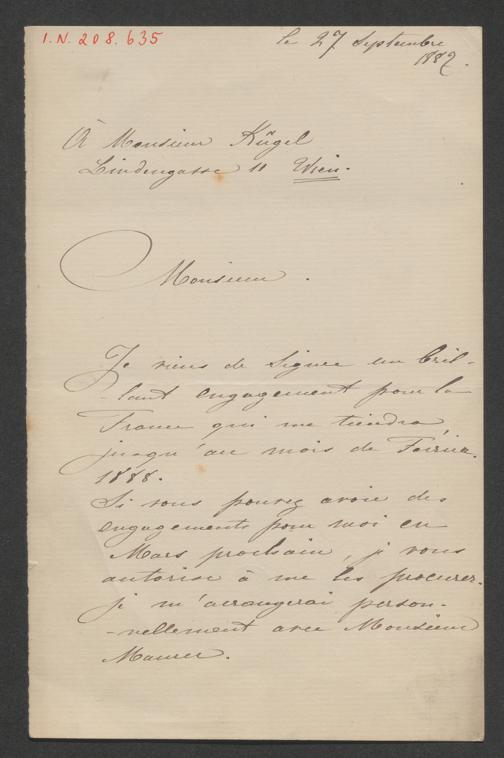 I.N. 208.635
le 27 Septembre
1887.
À Monsieur Kügel
Lindengasse 11 Wien.
Monsieur.
Je viens de signer un bril-
-lant engagement pour la
France qui me tiendra,
jusqu'au mois de Fevrier.
1888.
Si vous pouvez avoir des
engagements pour moi en
Mars prochain, je vous
autorise à me les procurer.
je m'arrangerai person-
-nellement avec Monsieur
Maurer.